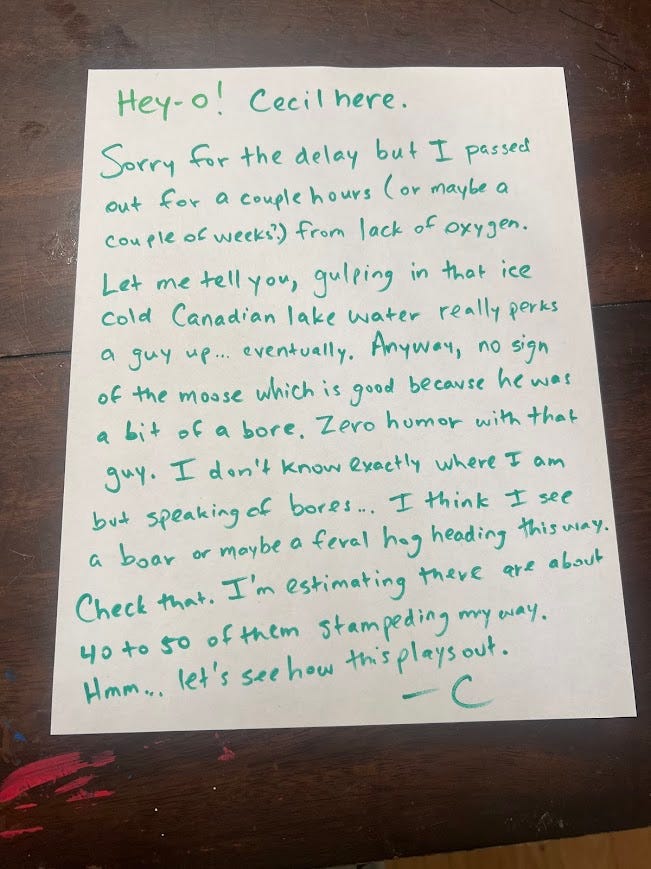 Hey-o! Cecil here.
Sorry for the delay but I passed
out for a couple hours (or maybe a
couple of weeks?) from lack of oxygen.
Let me tell you, gulping in that ice
cold Canadian lake water really perks
a guy up... eventually. Anyway, no sign
of the moose which is good because he was
a bit of a bore. Zero humor with that
guy. I don't know exactly where I am
but speaking of bores... I think I see
a boar or maybe a feral hog heading this way.
Check that. I'm estimating there are about
40 to 50 of them stampeding my way.
Hmm... let's see how this plays out.
— C